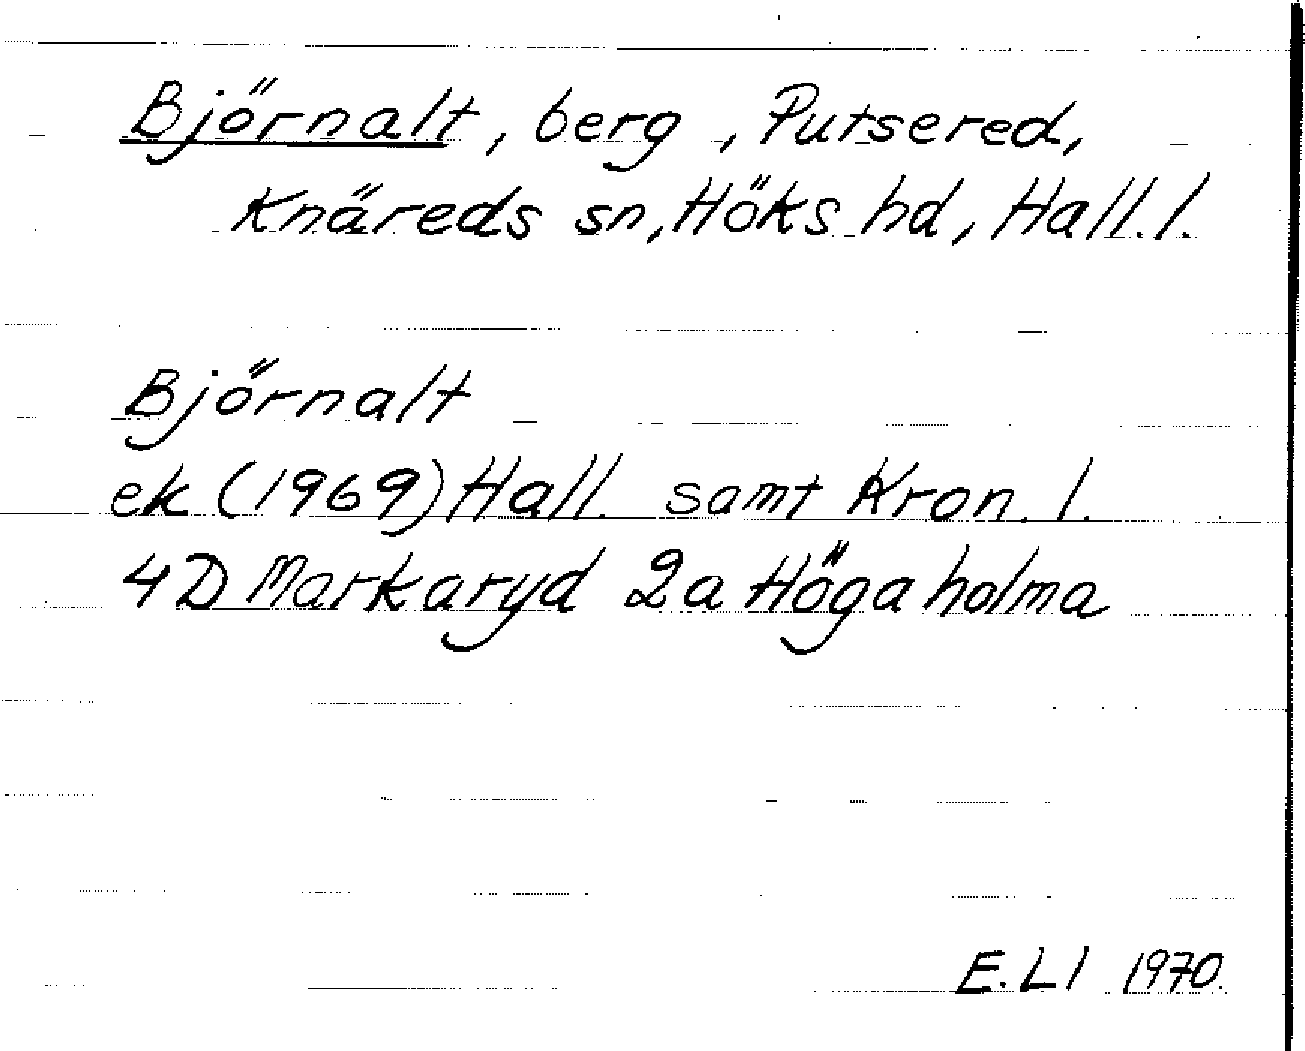 Björnalt, berg, Putsered,
Knäreds sn, Höks hd, Hall. l.
Björnalt
ek (1969) Hall. samt Kron. l.
4D Markaryd 2a Högaholma
E. Ll 1970.